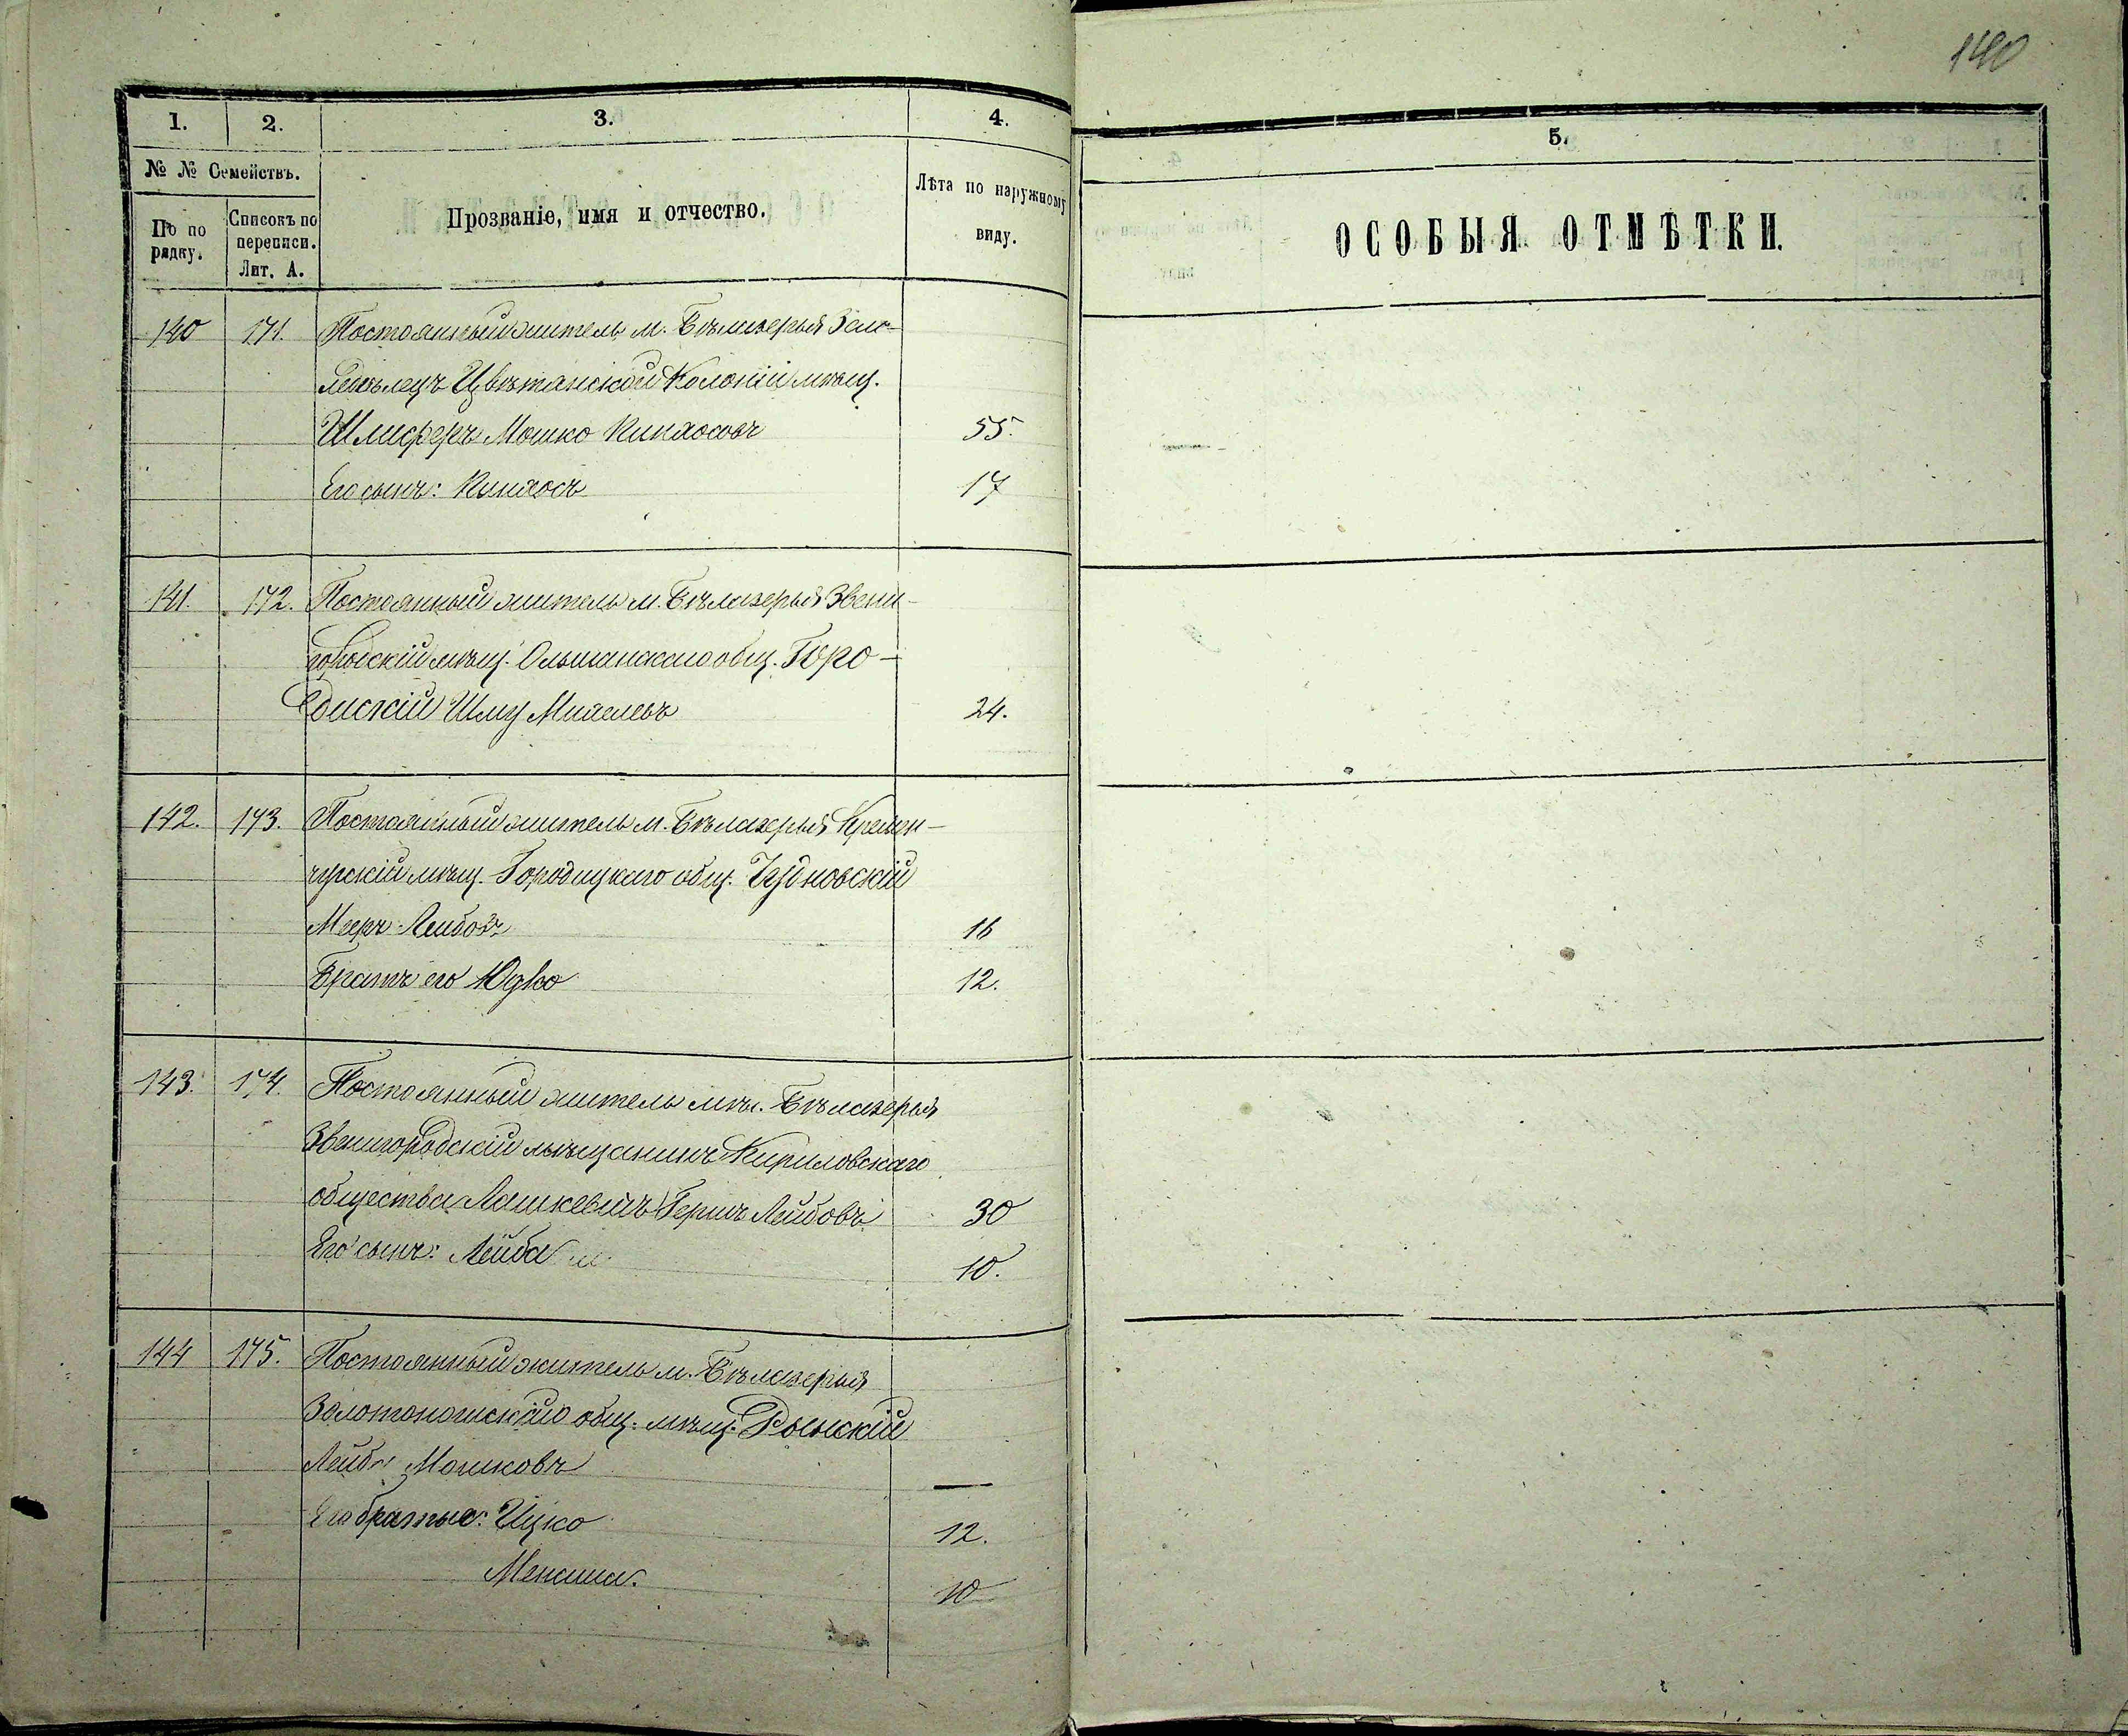 140
1. 2. 3. 4. 5.
№ № Семействъ.
По по рядку.
Списокъ по переписи. Лит. А.
Прозваніе, имя и отчество.
Лѣта по наружному виду.
ОСОБЫЯ ОТМѢТКИ.
140 171. Постоянный житель м. Бѣлазерья Земле-
дѣлецъ Цвѣтанской Колоніи мѣщ.
Шлиферъ Мошко Пинхосовъ 55.
Его сынъ: Пинхосъ 17
141. 172. Постоянный житель м. Бѣлазерья Звени-
городскій мѣщ. Ольшанскаго общ. Горо-
дискій Шму Михелевъ 24.
142. 173. Постоянный житель м. Бѣлазерья Кремен-
чугскій мѣщ. Городицкаго общ. Чудновскій
Мееръ Лейбовъ 16
Братъ его Юдко 12.
143. 174. Постоянный житель мѣс. Бѣлазерья
Звенигородскій мѣщанинъ Кириловскаго
общества Лашкевичъ Гершъ Лейбовъ 30
Его сынъ: Лейба 10.
144 175. Постоянный житель м. Бѣлазерья
Золотоношскаго общ. мѣщ. Рынскій
Лейба Мошковъ —
Его братья: Ицко 12.
Менаша. 10